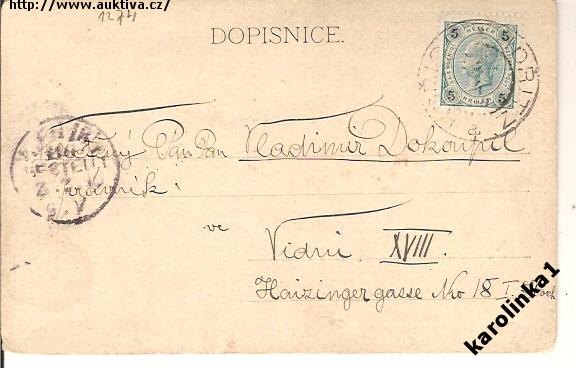 http://www.auktiva.cz/
1274
DOPISNICE.
5 5
5 5
Pán Pan Vladimir Dokoupil
právník
ve
Vídni XVIII.
Haizingergasse No 18 I.
karolinka1